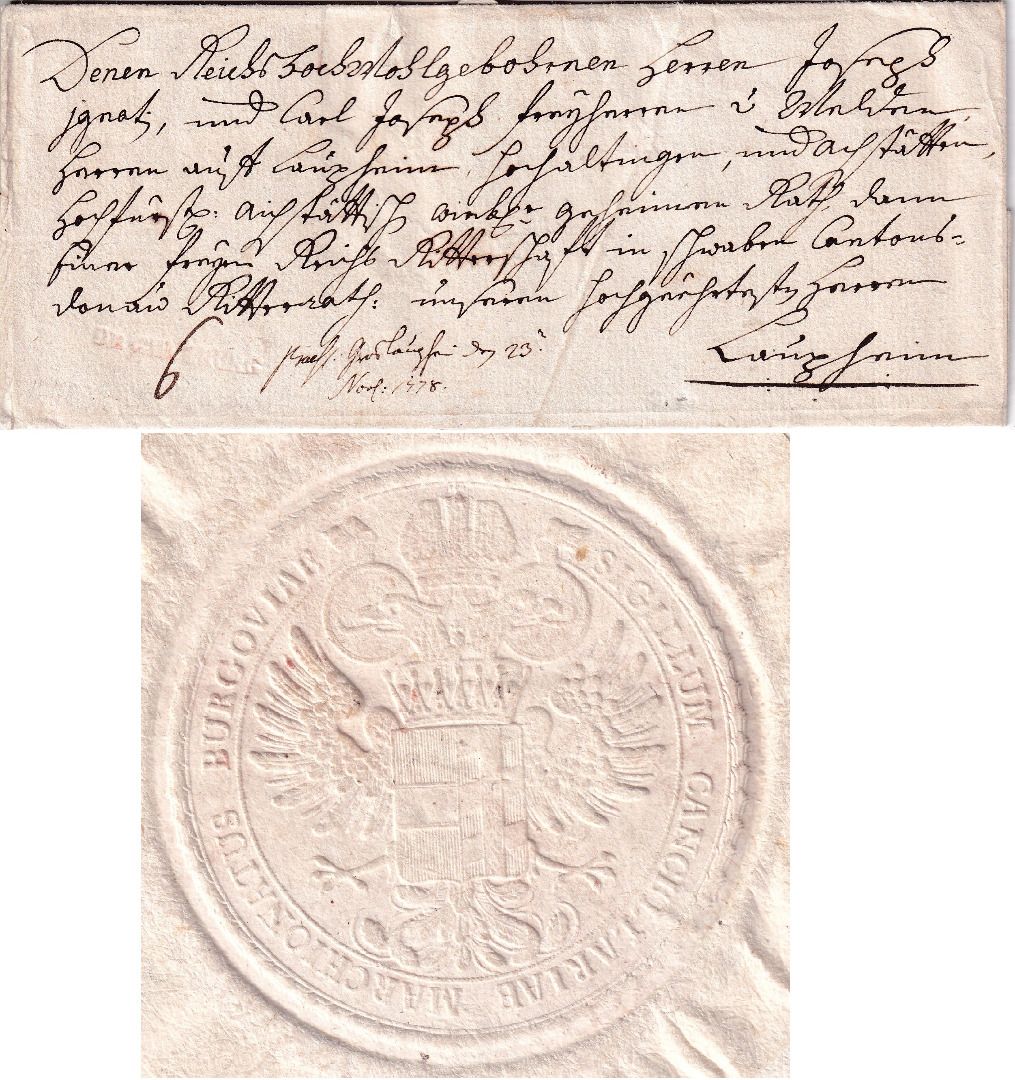 Denen ReichsHochWohlgebohrnen Herren Joseph
Ignati, und Carl Joseph Freyherren v Welden,
Herren auff Laupheim, Hochaltingen, und Achstätten,
Hochfürstl: Aichstättisch würkhe geheimen Rath, dann
Einer Freyen Reichs Ritterschafft in Schwaben Cantons=
Donau Ritterrath: unseren Hochgeehrtesten Herren
Laupheim
6
præs: Groslaupheim den 23:
Nov: 1778.
SIGILLUM CANCELLARIAE MARCHIONATUS BURGOVIAE